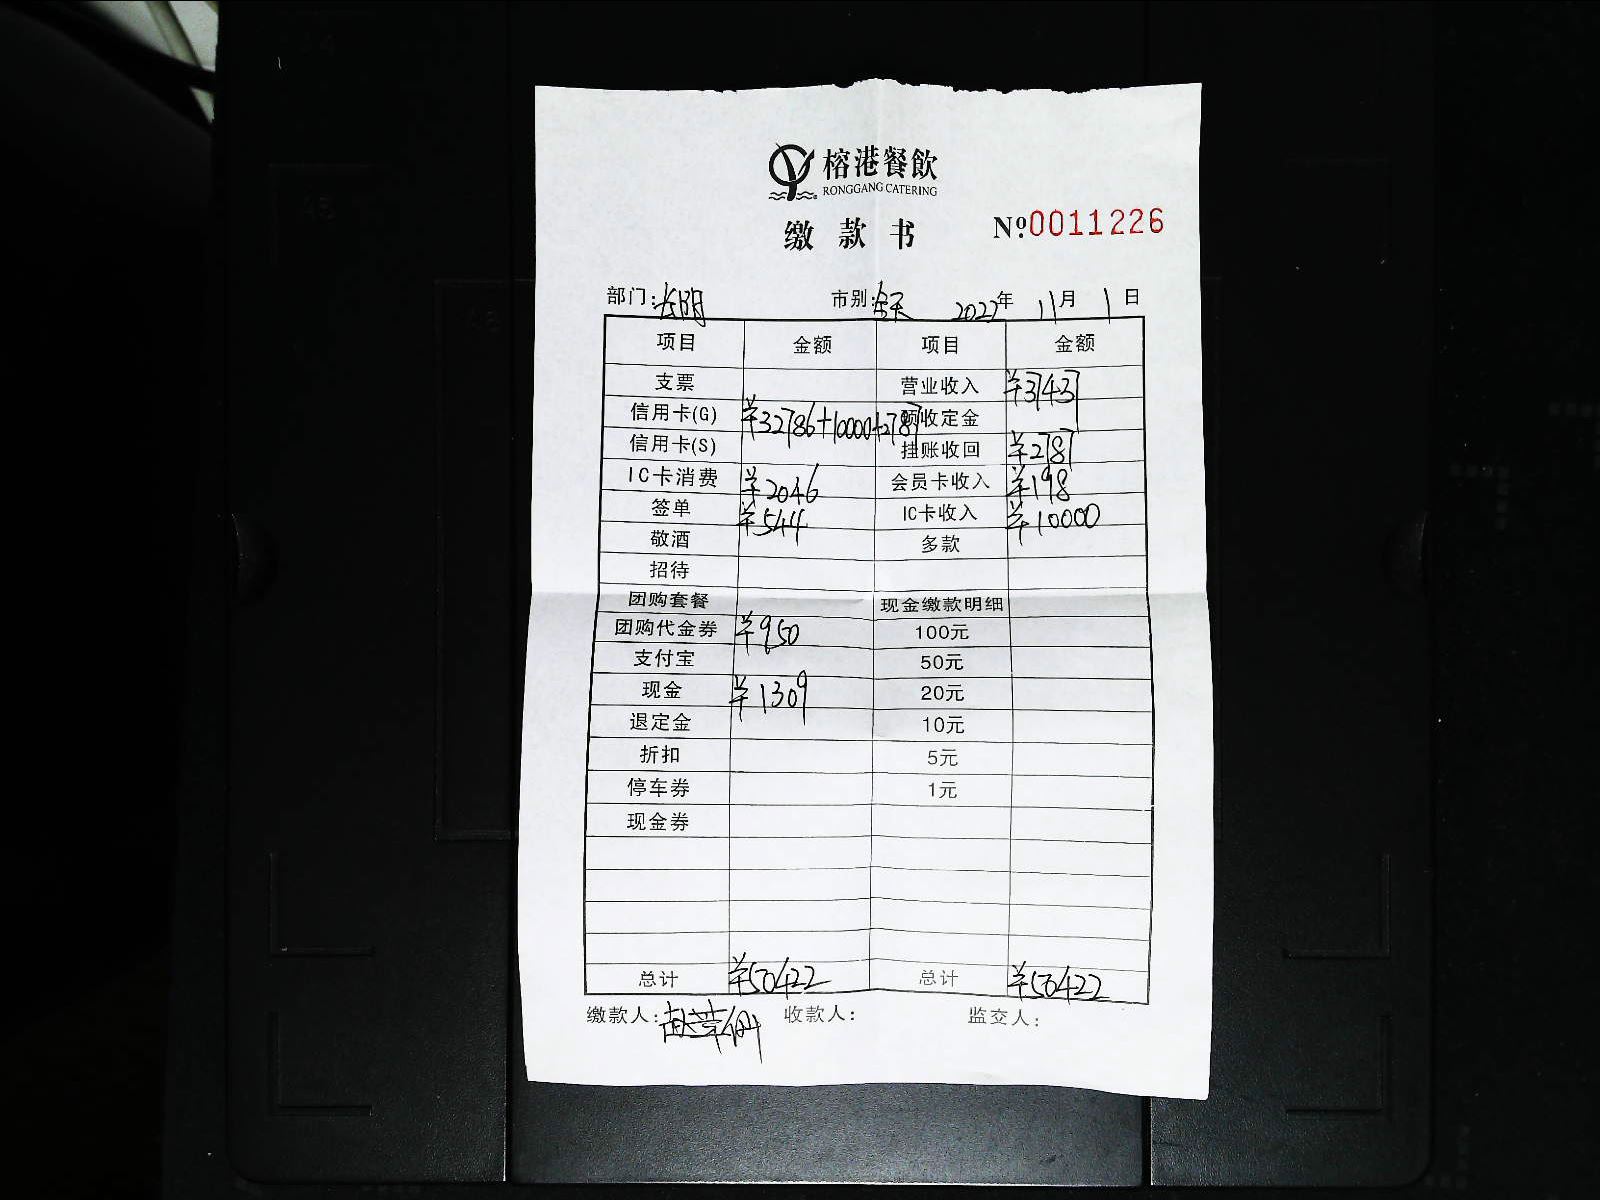 榕港餐飲
RONGGANG CATERING
缴款书 №0011226
部门:长阳 市别:全天 2022年 11月 1日
项目 金额 项目 金额
支票 营业收入 ¥37437
信用卡(G) ¥32786+10000+2787 预收定金
信用卡(S) 挂账收回 ¥2787
IC卡消费 ¥2046 会员卡收入 ¥198
签单 ¥544 IC卡收入 ¥10000
敬酒 多款
招待
团购套餐 现金缴款明细
团购代金券 ¥950 100元
支付宝 50元
现金 ¥1309 20元
退定金 10元
折扣 5元
停车券 1元
现金券
总计 ¥50422 总计 ¥50422
缴款人: 收款人: 监交人: